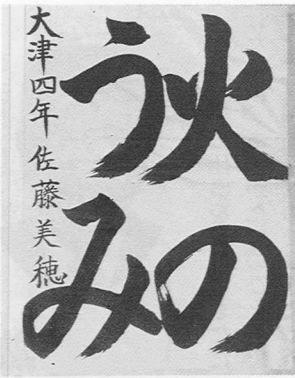 火の
うみ
大津四年佐藤美穂